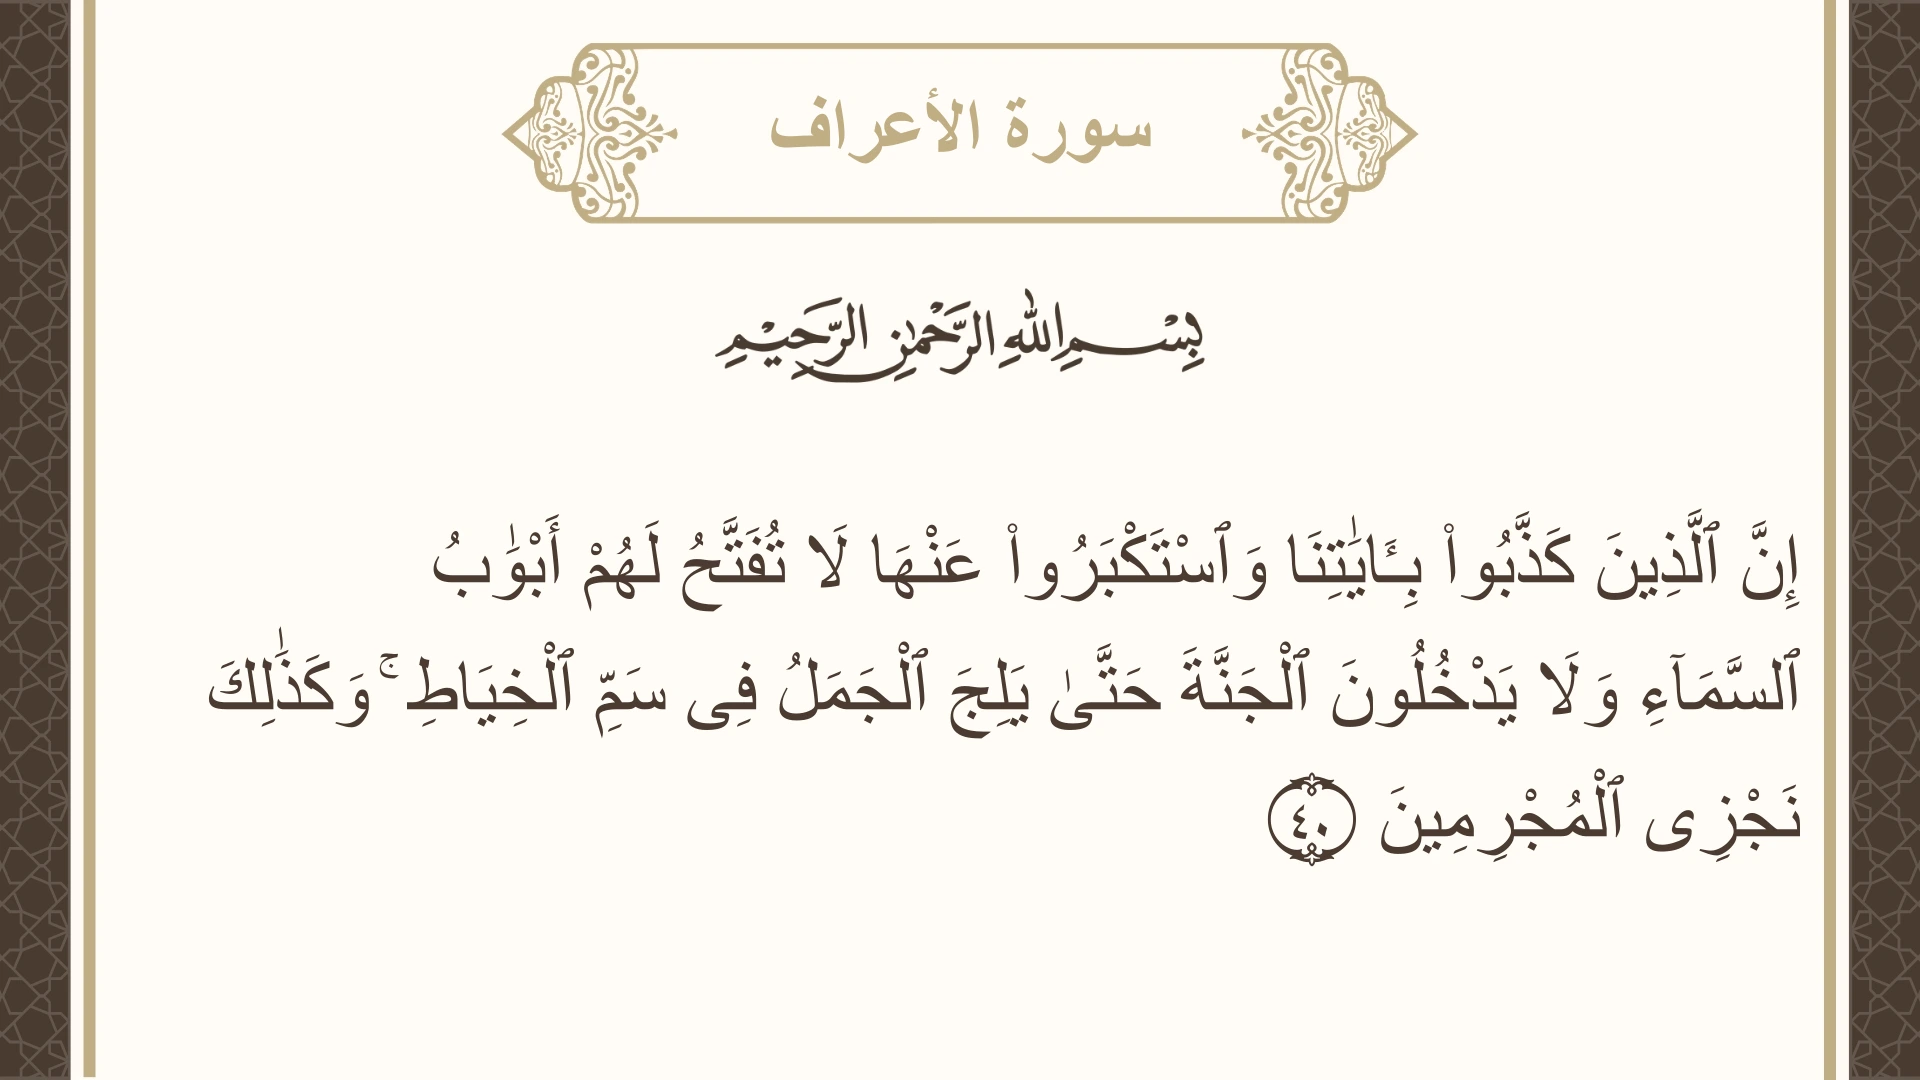 سورة الأعراف
بِسْمِ اللهِ الرَّحْمٰنِ الرَّحِيْمِ
إِنَّ ٱلَّذِينَ كَذَّبُوا۟ بِـَٔايَـٰتِنَا وَٱسْتَكْبَرُوا۟ عَنْهَا لَا تُفَتَّحُ لَهُمْ أَبْوَٰبُ
ٱلسَّمَآءِ وَلَا يَدْخُلُونَ ٱلْجَنَّةَ حَتَّىٰ يَلِجَ ٱلْجَمَلُ فِى سَمِّ ٱلْخِيَاطِ ۚ وَكَذَٰلِكَ
نَجْزِى ٱلْمُجْرِمِينَ ٤٠